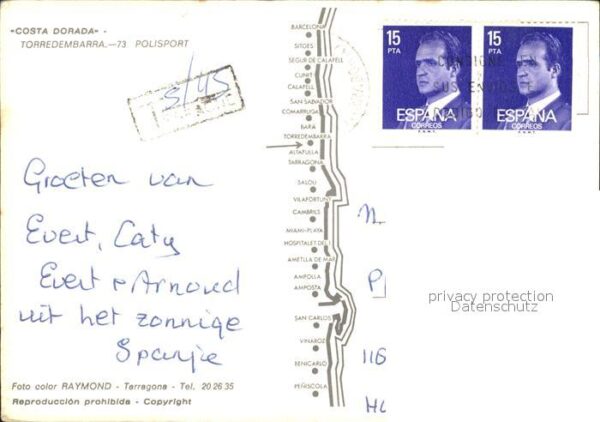 «COSTA DORADA» -
TORREDEMBARRA.—73 POLISPORT
5/45
Groeten van
Evert, Caty
Evert + Arnoud
uit het zonnige
Spanje
Foto color RAYMOND - Tarragona - Tel. 20 26 35
Reproducción prohibida - Copyright
BARCELONA
SITGES
SEGUR DE CALAFELL
CUNIT
CALAFELL
SAN SALVADOR
COMARRUGA
BARA
TORREDEMBARRA
ALTAFULLA
TARRAGONA
SALOU
VILAFORTUNY
CAMBRILS
MIAMI-PLAYA
HOSPITALET DEL I.
AMETLLA DE MAR
AMPOLLA
AMPOSTA
SAN CARLOS
VINAROZ
BENICARLO
PEÑISCOLA
15
PTA
ESPAÑA
CORREOS
F.N.M.T.
15
PTA
ESPAÑA
CORREOS
F.N.M.T.
privacy protection
Datenschutz
116